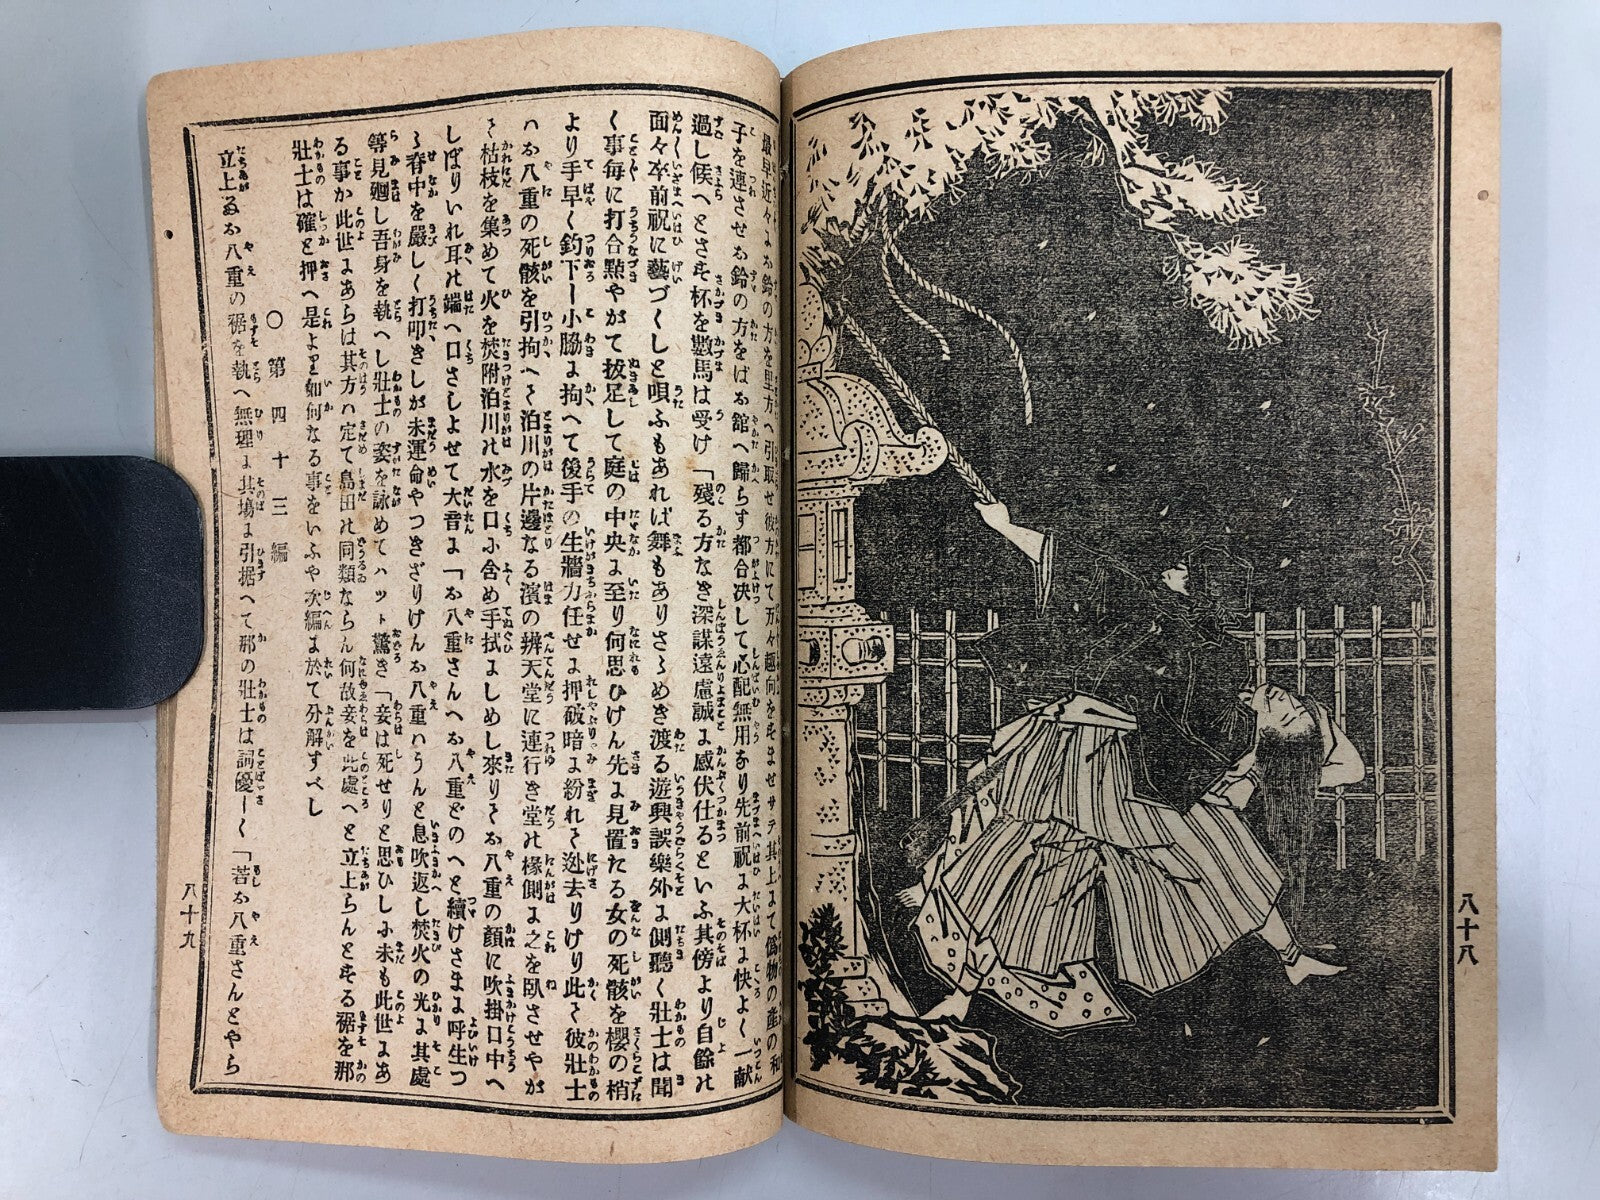 八十八
最早近々よりお鈴の方を里方へ引取せ彼方にて万々趣向をすませサテ其上まて偽物の産の和
子を連させお鈴の方をばお館へ歸らす都合決して心配無用なり先前祝に大杯よ快よく一献
過し候へとさす杯を數馬は受け「殘る方なき深謀遠慮誠よ感伏仕るといふ其傍より自餘の
面々卒前祝に藝づくしと唄ふもあれば舞もありさゝめき渡る遊興誤樂外よ側聽く壯士は聞
く事毎に打合點やがて拔足して庭の中央よ至り何思ひけん先よ見置たる女の死骸を櫻の梢
より手早く釣下し小脇よ拘へて後手の生牆力任せよ押破暗よ紛れて迯去りけり此て彼壯士
ハお八重の死骸を引拘へ〳〵泊川の片邊なる濱の辨天堂に連行き堂の椽側よ之を臥させやが
て枯枝を集めて火を焚附泊川の水を口に含め手拭よしめし來りてお八重の顏に吹掛口中へ
しぼりいれ耳の端へ口さしよせて大音よ「お八重さんへお八重どのへと續けさまよ呼生つ
ゝ脊中を嚴しく打叩きしが未運命やつきざりけんお八重ハうんと息吹返し焚火の光よ其處
等見廻し吾身を執へし壯士の姿を詠めてハット驚き「妾は死せりと思ひしに未も此世よあ
る事か此世よあらは其方ハ定て島田の同類ならん何故妾を此處へと立上らんとする裾を那
壯士は確と押へ是より如何なる事をいふや次編よ於て分解すべし
○第四十三編
立上るお八重の裾を執へ無理よ其塲よ引据へて那の壯士は詞優しく「若お八重さんとやら
八十九